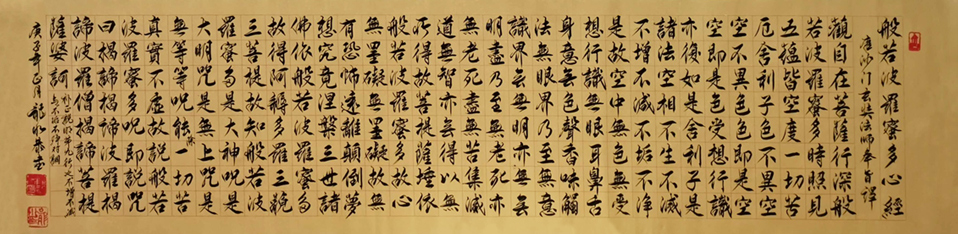 般若波羅蜜多心經
唐沙門玄奘法師奉旨譯
觀自在菩薩行深般
若波羅蜜多時照見
五蘊皆空度一切苦
厄舍利子色不異空
空不異色色即是空
空即是色受想行識
亦復如是舍利子是
諸法空相不生不滅
不增不減不垢不淨
是故空中無色無受
想行識無眼耳鼻舌
身意無色聲香味觸
法無眼界乃至無意
識界無無明亦無無
明盡乃至無老死亦
無老死盡無苦集滅
道無智亦無得以無
所得故菩提薩埵依
般若波羅蜜多故心
無罣礙無罣礙故無
有恐怖遠離顛倒夢
想究竟涅槃三世諸
佛依般若波羅蜜多
故得阿耨多羅三藐
三菩提故知般若波
羅蜜多是大神咒是
大明咒是無上咒是
無等等咒能除一切苦
真實不虛故說般若
波羅蜜多咒即說咒
曰揭諦揭諦波羅揭
諦波羅僧揭諦菩提
薩婆訶
庚子年正月